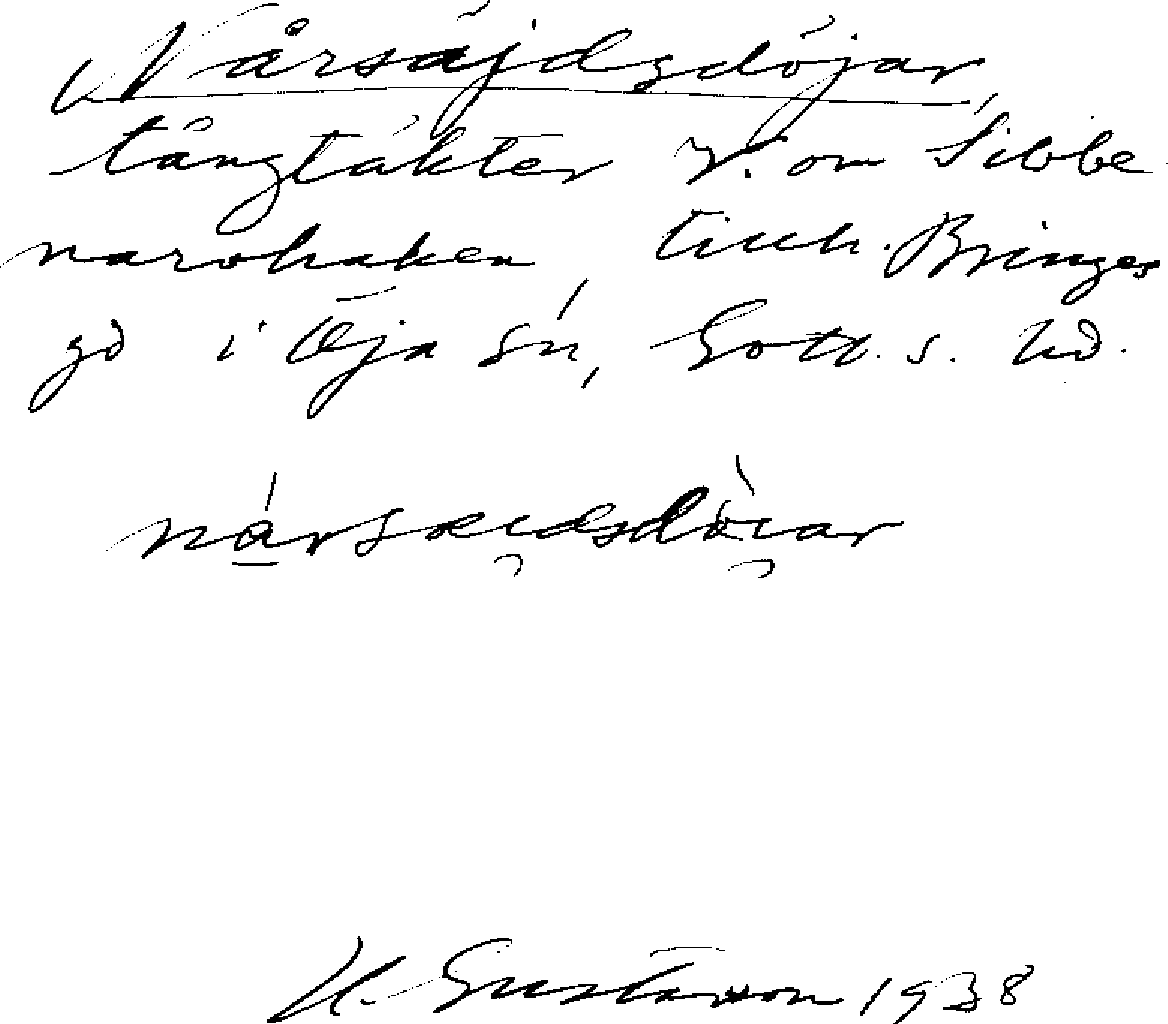 Nårsäjdzdöjar,
tångtäkter V. om Sibbe
narvhaken, tillh. Bringes
gd i Öja sn, Gotl. s. hd.
nårsæidsdòiar
H. Gustavson 1938